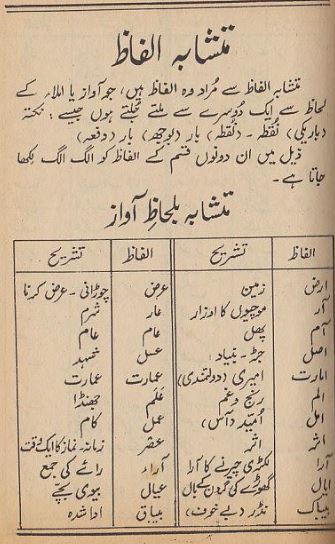 متشابہ الفاظ
متشابہ الفاظ سے مُراد وہ الفاظ ہیں، جو آواز یا املاء کے
لحاظ سے ایک دُوسرے سے ملتے جُلتے ہوں جیسے: نکتہ
(باریکی) نُقطہ - (نقطہ) بار (بوجھ) بار (دفعہ)
ذیل میں ان دونوں قسم کے الفاظ کو الگ الگ لکھا
جاتا ہے۔
متشابہ بلحاظِ آواز
الفاظ تشریح الفاظ تشریح
ارض زمین عرض چوڑائی - عرض کرنا
آر موچیوں کا اوزار عار شرم
آم پھل عام عام
اصل جڑ - بنیاد : عسل شہد
امارت امیری (دولتمندی) عمارت عمارت
الم رنج و غم عَلَم جھنڈا
امل اُمید (آس) عمل کام
اثر اثر عصر زمانہ - نماز کا ایک وقت
آرا لکڑی چیرنے کا آرا آراء رائے کی جمع
ایال گھوڑے کی گردن کے بال عیال بیوی بچے
بیباک نڈر (بے خوف) بیباق ادا شدہ